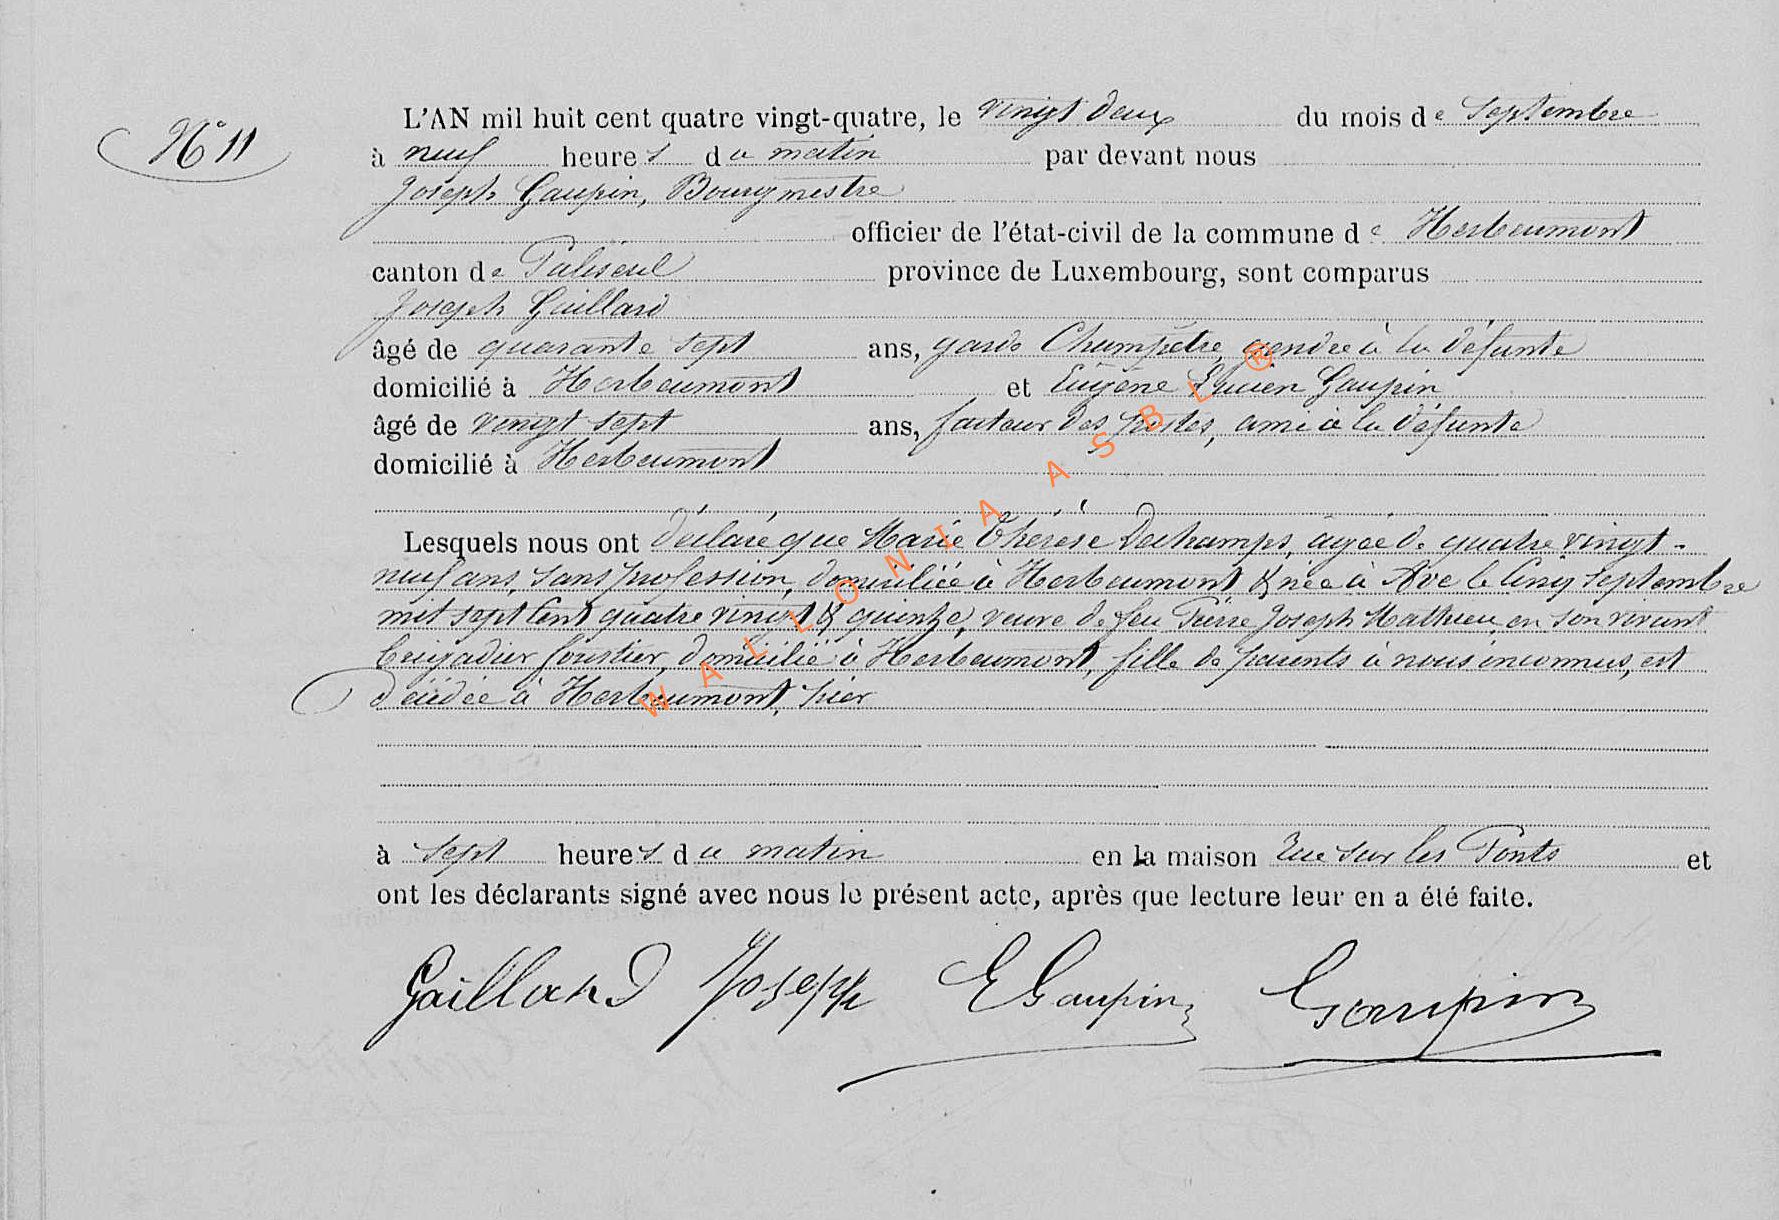 N° 11
L'AN mil huit cent quatre vingt-quatre, le vingt deux du mois de Septembre
à neuf heures du matin par devant nous
Joseph Gaupin, Bourgmestre
officier de l'état-civil de la commune de Herbeumont
canton de Paliseul province de Luxembourg, sont comparus
Joseph Gaillard
âgé de quarante sept ans, garde Champêtre, gendre à la défunte
domicilié à Herbeumont et Eugène Lucien Gaupin
âgé de vingt sept ans, facteur des postes, ami à la défunte
domicilié à Herbeumont
Lesquels nous ont déclaré que Marie Thérèse Dechamps, âgée de quatre vingt-
neuf ans, sans profession, domiciliée à Herbeumont & née à Ave le cinq Septembre
mil sept cent quatre vingt & quinze, veuve de feu Pierre Joseph Mathieu, en son vivant
brigadier forestier, domicilié à Herbeumont, fille de parents à nous inconnus, est
décédée à Herbeumont, hier
à sept heures du matin en la maison rue sur les Ponts et
ont les déclarants signé avec nous le présent acte, après que lecture leur en a été faite.
Gaillard Joseph EGaupin Gaupin
WALLONIA ASBL ®